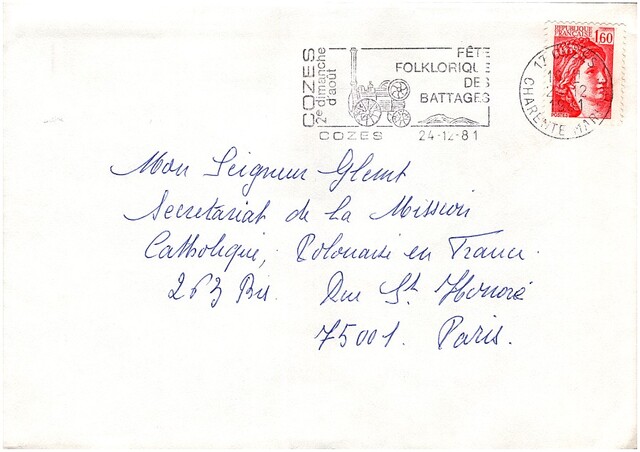 COZES
2e dimanche
d'août
FÊTE
FOLKLORIQUE
DES
BATTAGES
COZES 24-12-81
REPUBLIQUE
FRANÇAISE
1,60
17 COZES
CHARENTE MAR
Mon Seigneur Glemt
Secretariat de la Mission
Catholique, Polonaise en France.
263 Bis. Rue St Honoré
75001. Paris.